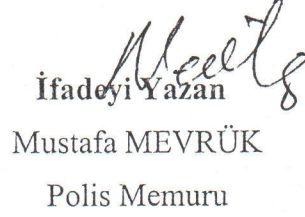 İfadeyi Yazan
Mustafa MEVRÜK
Polis Memuru